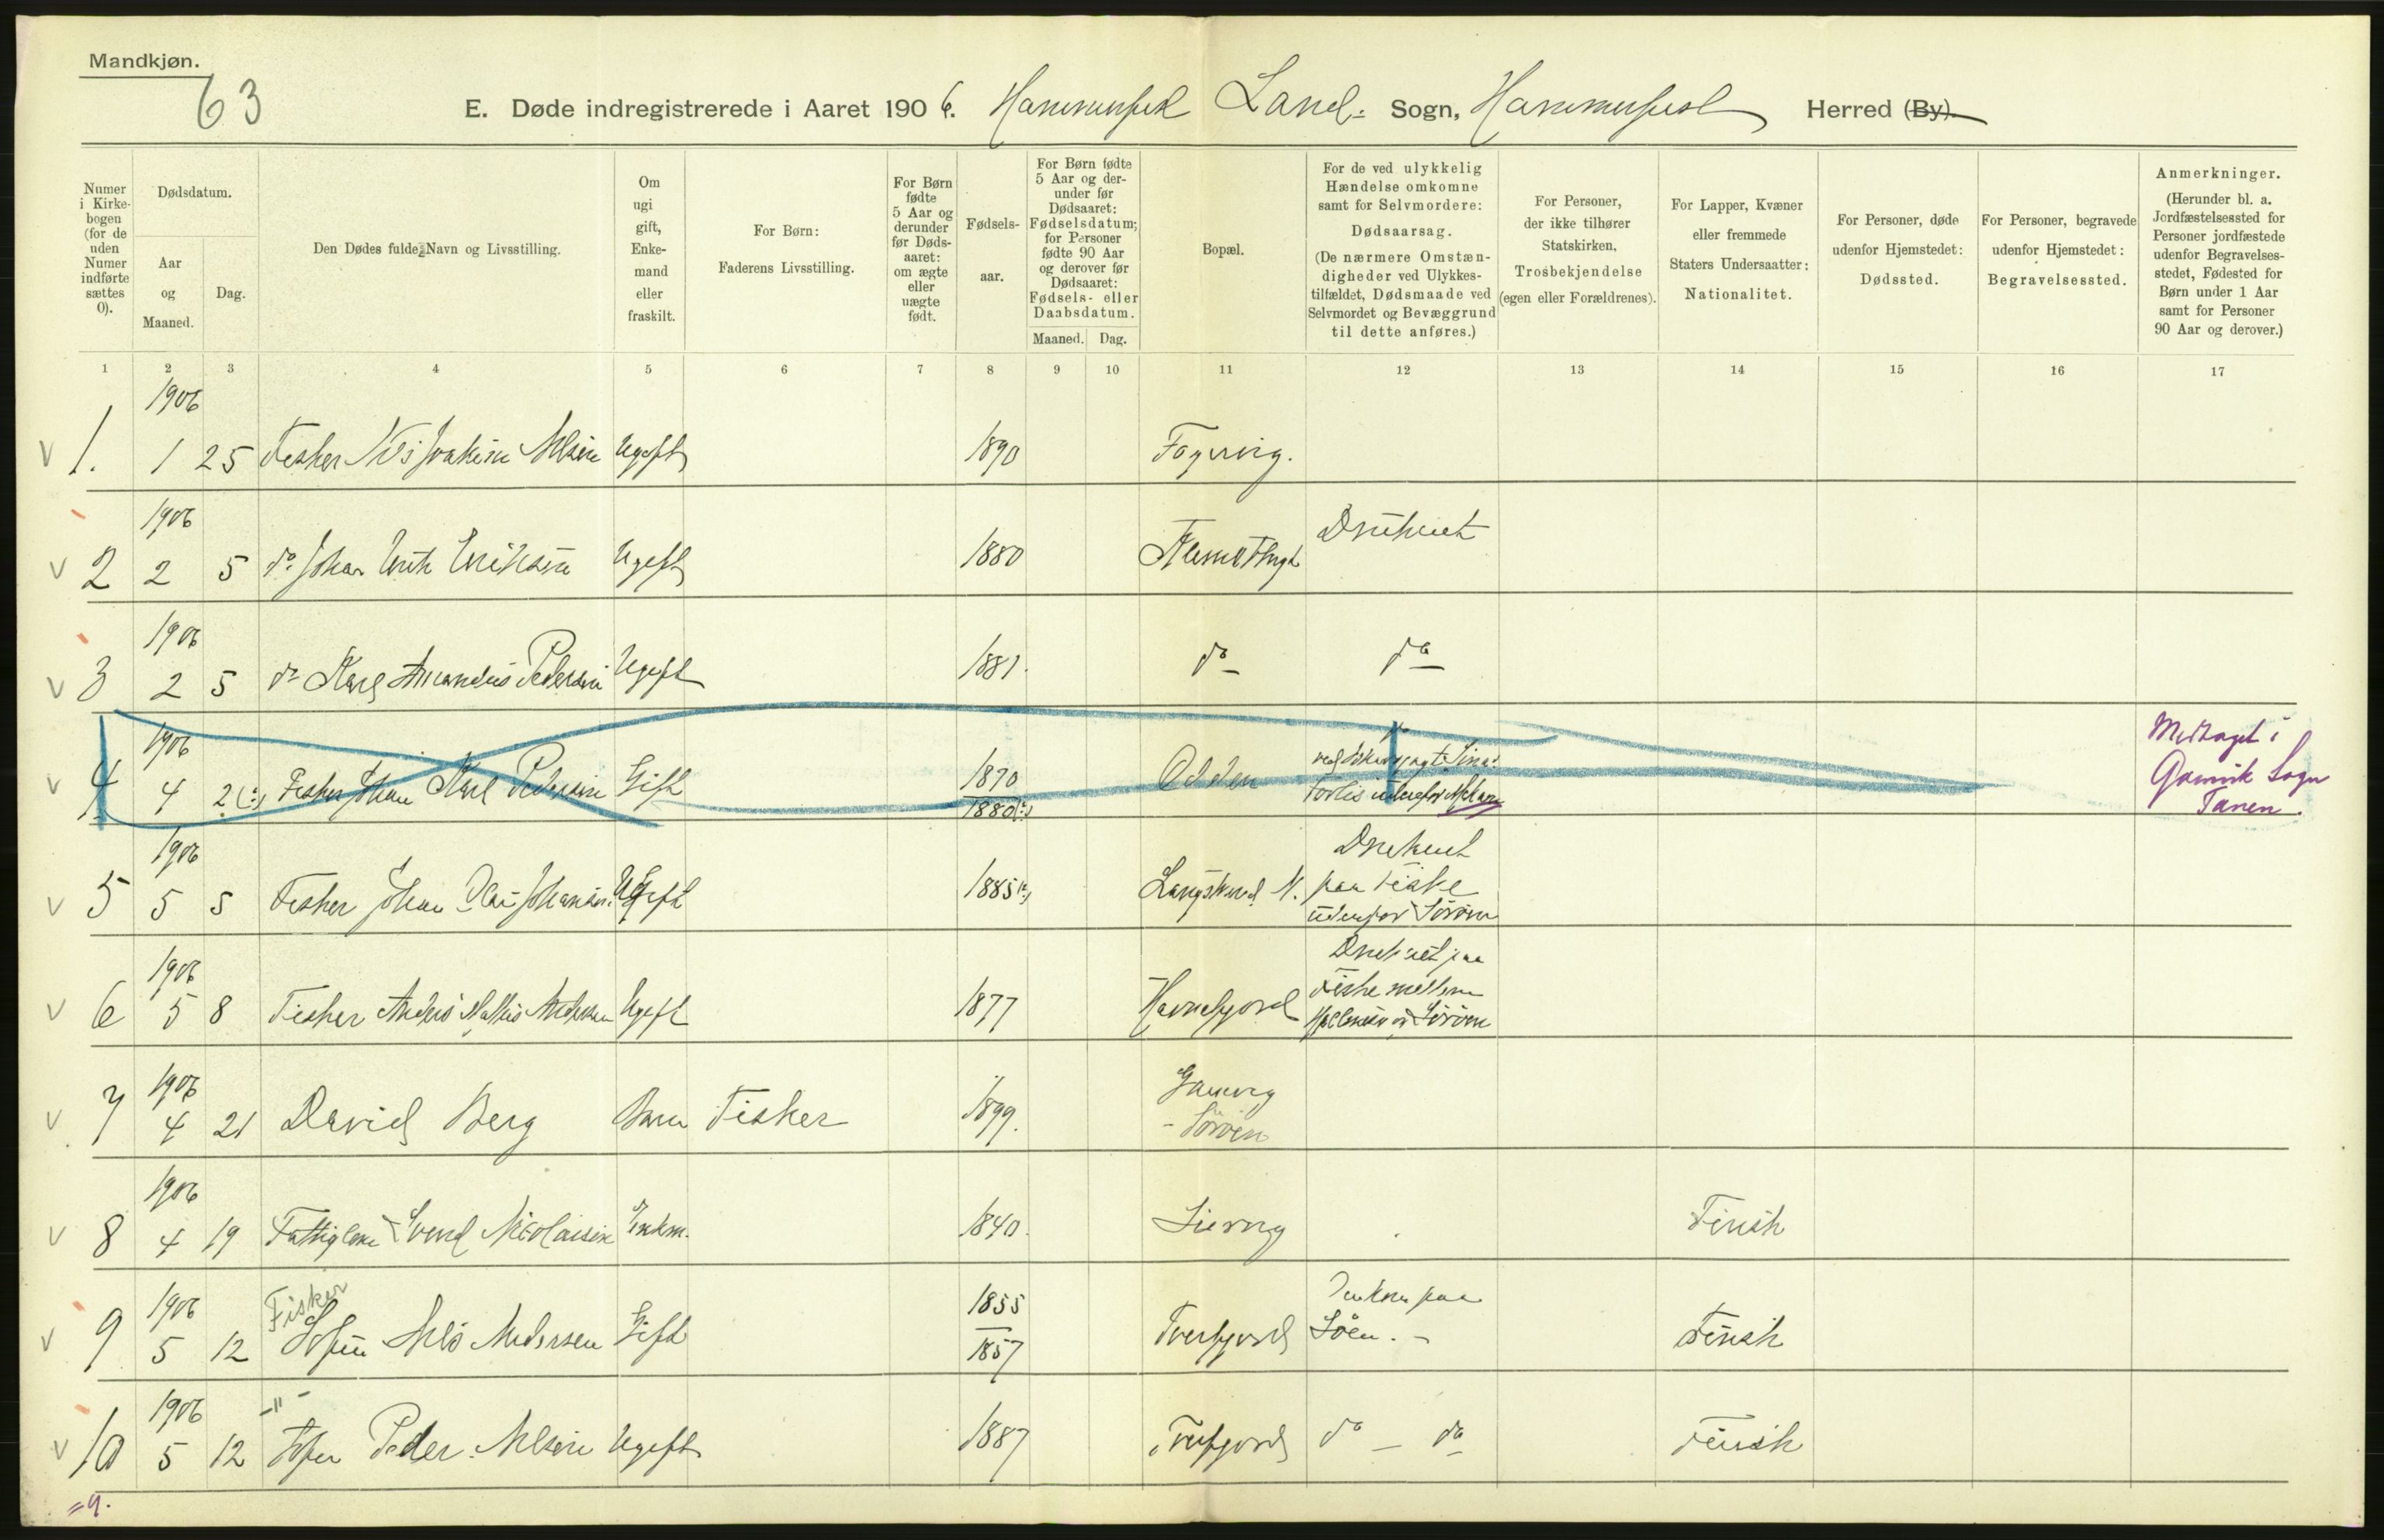 Mandkjøn.
63
E. Døde indregistrerede i Aaret 1906. Hammerfest Land- Sogn, Hammerfest Herred (By).
Numer i Kirkebogen (for de uden Numer indførte sættes 0).
Dødsdatum.
Aar og Maaned.
Dag.
Den Dødes fulde Navn og Livsstilling.
Om ugift, gift, Enkemand eller fraskilt.
For Børn: Faderens Livsstilling.
For Børn fødte 5 Aar og derunder før Dødsaaret: om ægte eller uægte født.
Fødselsaar.
For Børn fødte 5 Aar og derunder før Dødsaaret: Fødselsdatum; for Personer fødte 90 Aar og derover før Dødsaaret: Fødsels- eller Daabsdatum.
Maaned. Dag.
Bopæl.
For de ved ulykkelig Hændelse omkomne samt for Selvmordere: Dødsaarsag. (De nærmere Omstændigheder ved Ulykkestilfældet, Dødsmaade ved Selvmordet og Bevæggrund til dette anføres.)
For Personer, der ikke tilhører Statskirken, Trosbekjendelse (egen eller Forældrenes).
For Lapper, Kvæner eller fremmede Staters Undersaatter: Nationalitet.
For Personer, døde udenfor Hjemstedet: Dødssted.
For Personer, begravede udenfor Hjemstedet: Begravelsessted.
Anmerkninger. (Herunder bl. a. Jordfæstelsessted for Personer jordfæstede udenfor Begravelsesstedet, Fødested for Børn under 1 Aar samt for Personer 90 Aar og derover.)
1 2 3 4 5 6 7 8 9 10 11 12 13 14 15 16 17
1906
1. 1 25 Fisker Nils Joakim Nilsen Ugift 1890 Fogvig.
1906
2 2 5 do Johan Erik Eriksen Ugift 1880 Druknet
1906
3 2 5 do Karl Amandus Pedersen Ugift 1881. do do
1906
4 4 2(?) Fisker Johan Karl Pedersen Gift 1870 Odden
1880(?)
Medtaget i
Gamvik Sogn
Tanen.
1906
5 5 5 Fisker Johan Olai Johansen Ugift 1885(?) Druknet
paa Fiske
udenfor Sørøen
1906
6 5 8 Fisker Anders Mathis Andersen Ugift 1877 Havnefjord Druknet paa
Fiske mellem
og Sørøen
1906
7 4 21 David Berg Barn Fisker 1899. Gamvig
- Sørøen
1906
8 4 19 Fattiglem Svend Nicolaisen Enkm. 1840. Finsk
1906
9 5 12 Fisker
Nils Andersen Gift 1855
1857 Tverfjord Omkom paa
Søen. - Finsk
1906
10 5 12 -"- Peder Nilsen Ugift 1887 Tverfjord do - do Finsk
=9.